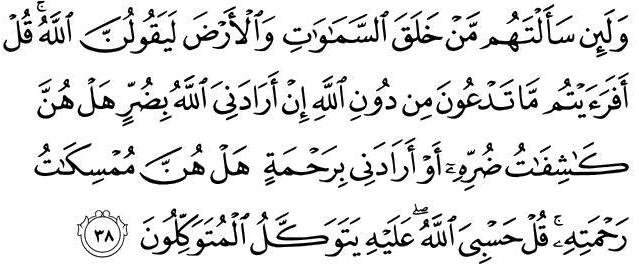 وَلَئِن سَأَلْتَهُم مَّنْ خَلَقَ السَّمَٰوَٰتِ وَالْأَرْضَ لَيَقُولُنَّ اللَّهُ ۚ قُلْ
أَفَرَءَيْتُم مَّا تَدْعُونَ مِن دُونِ اللَّهِ إِنْ أَرَادَنِيَ اللَّهُ بِضُرٍّ هَلْ هُنَّ
كَٰشِفَٰتُ ضُرِّهِۦٓ أَوْ أَرَادَنِي بِرَحْمَةٍ هَلْ هُنَّ مُمْسِكَٰتُ
رَحْمَتِهِۦ ۚ قُلْ حَسْبِيَ اللَّهُ ۖ عَلَيْهِ يَتَوَكَّلُ الْمُتَوَكِّلُونَ ٣٨